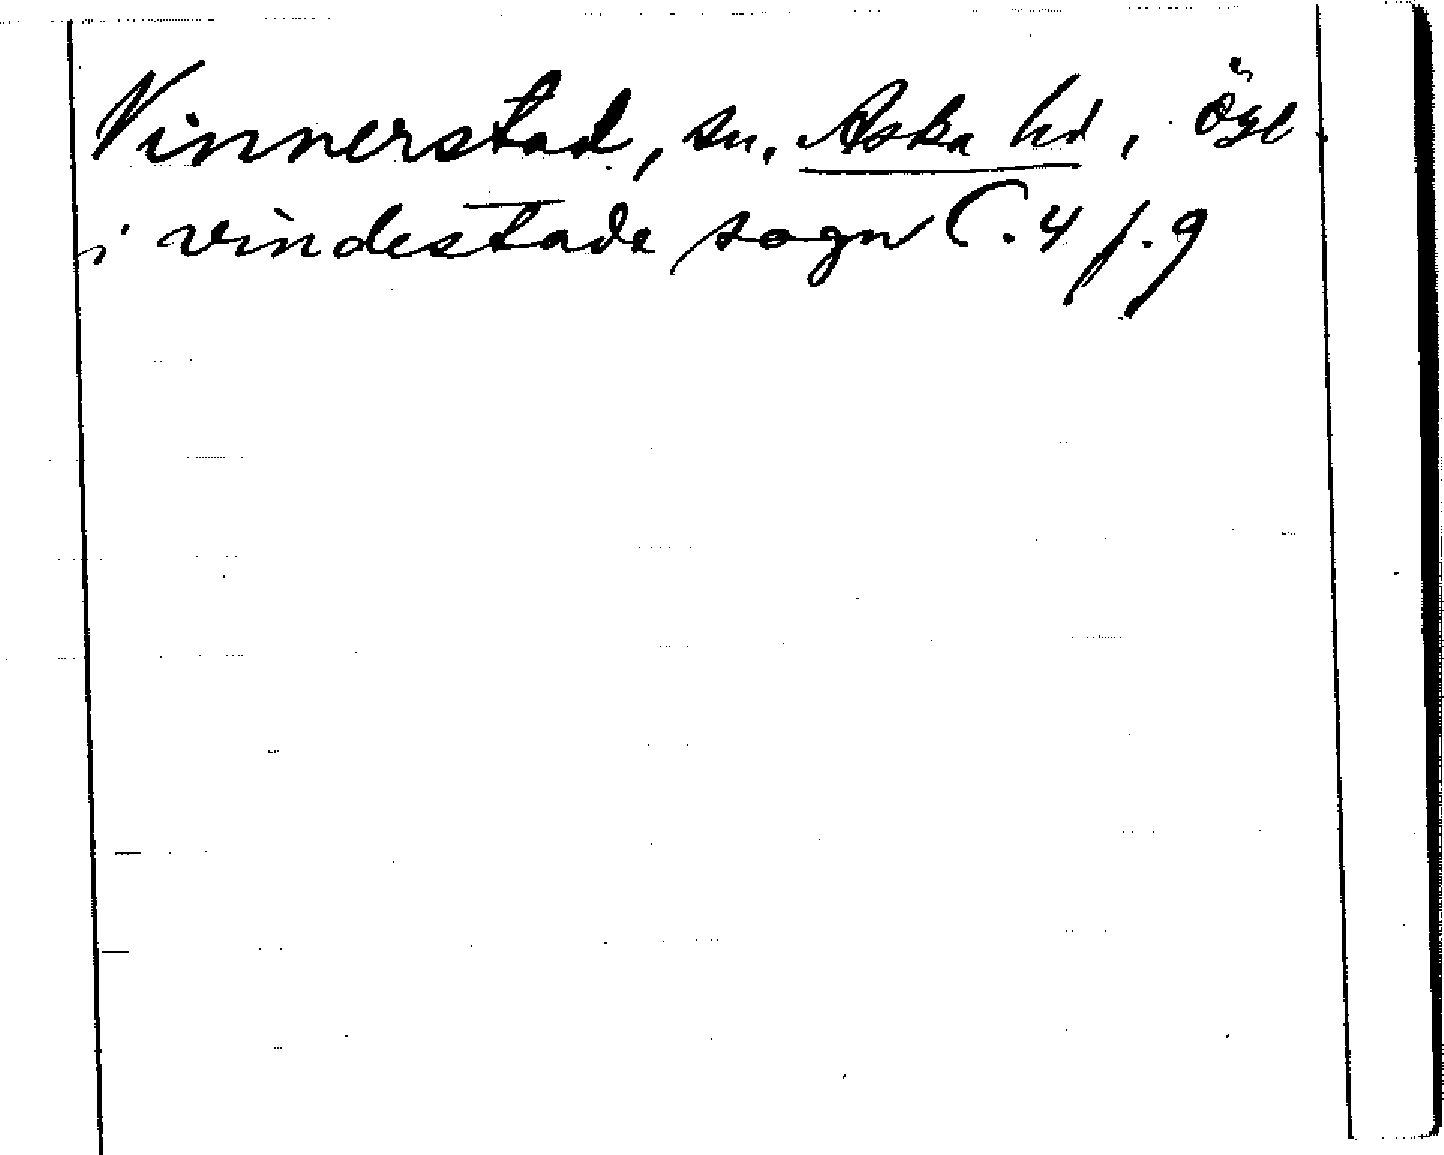 Vinnerstad, sn, Aska hd, Ögl
i vindestada sogn C. 4 f. 9